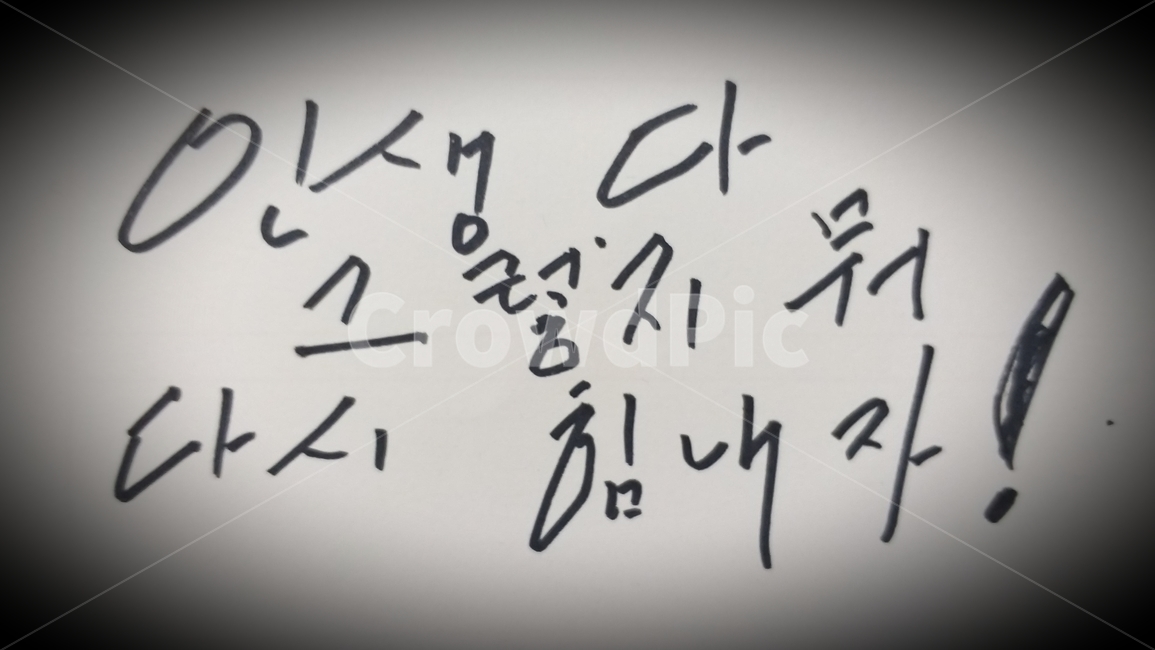 인생 다
그렇지 뭐
다시 힘내자!
CrowdPic